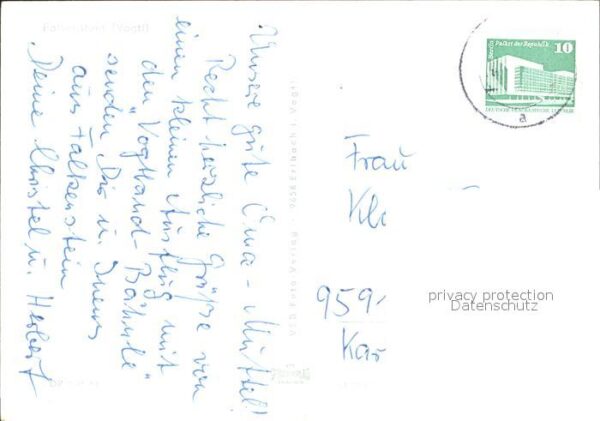 Falkenstein (Vogtl)
Unsere gute Oma-Muttel!
Recht herzliche Grüße von
einem kleinen Ausflug mit
den "Vogtland-Bähnle"
senden Dir u.
aus Falkenstein
Deine Christel u. Herbert
VEB Foto-Verlag · 9656 Erlbach i. Vogtl.
Berlin Palast der Republik
10
DEUTSCHE DEMOKRATISCHE REPUBLIK
a
Frau
Kl
959
Kar
privacy protection
Datenschutz